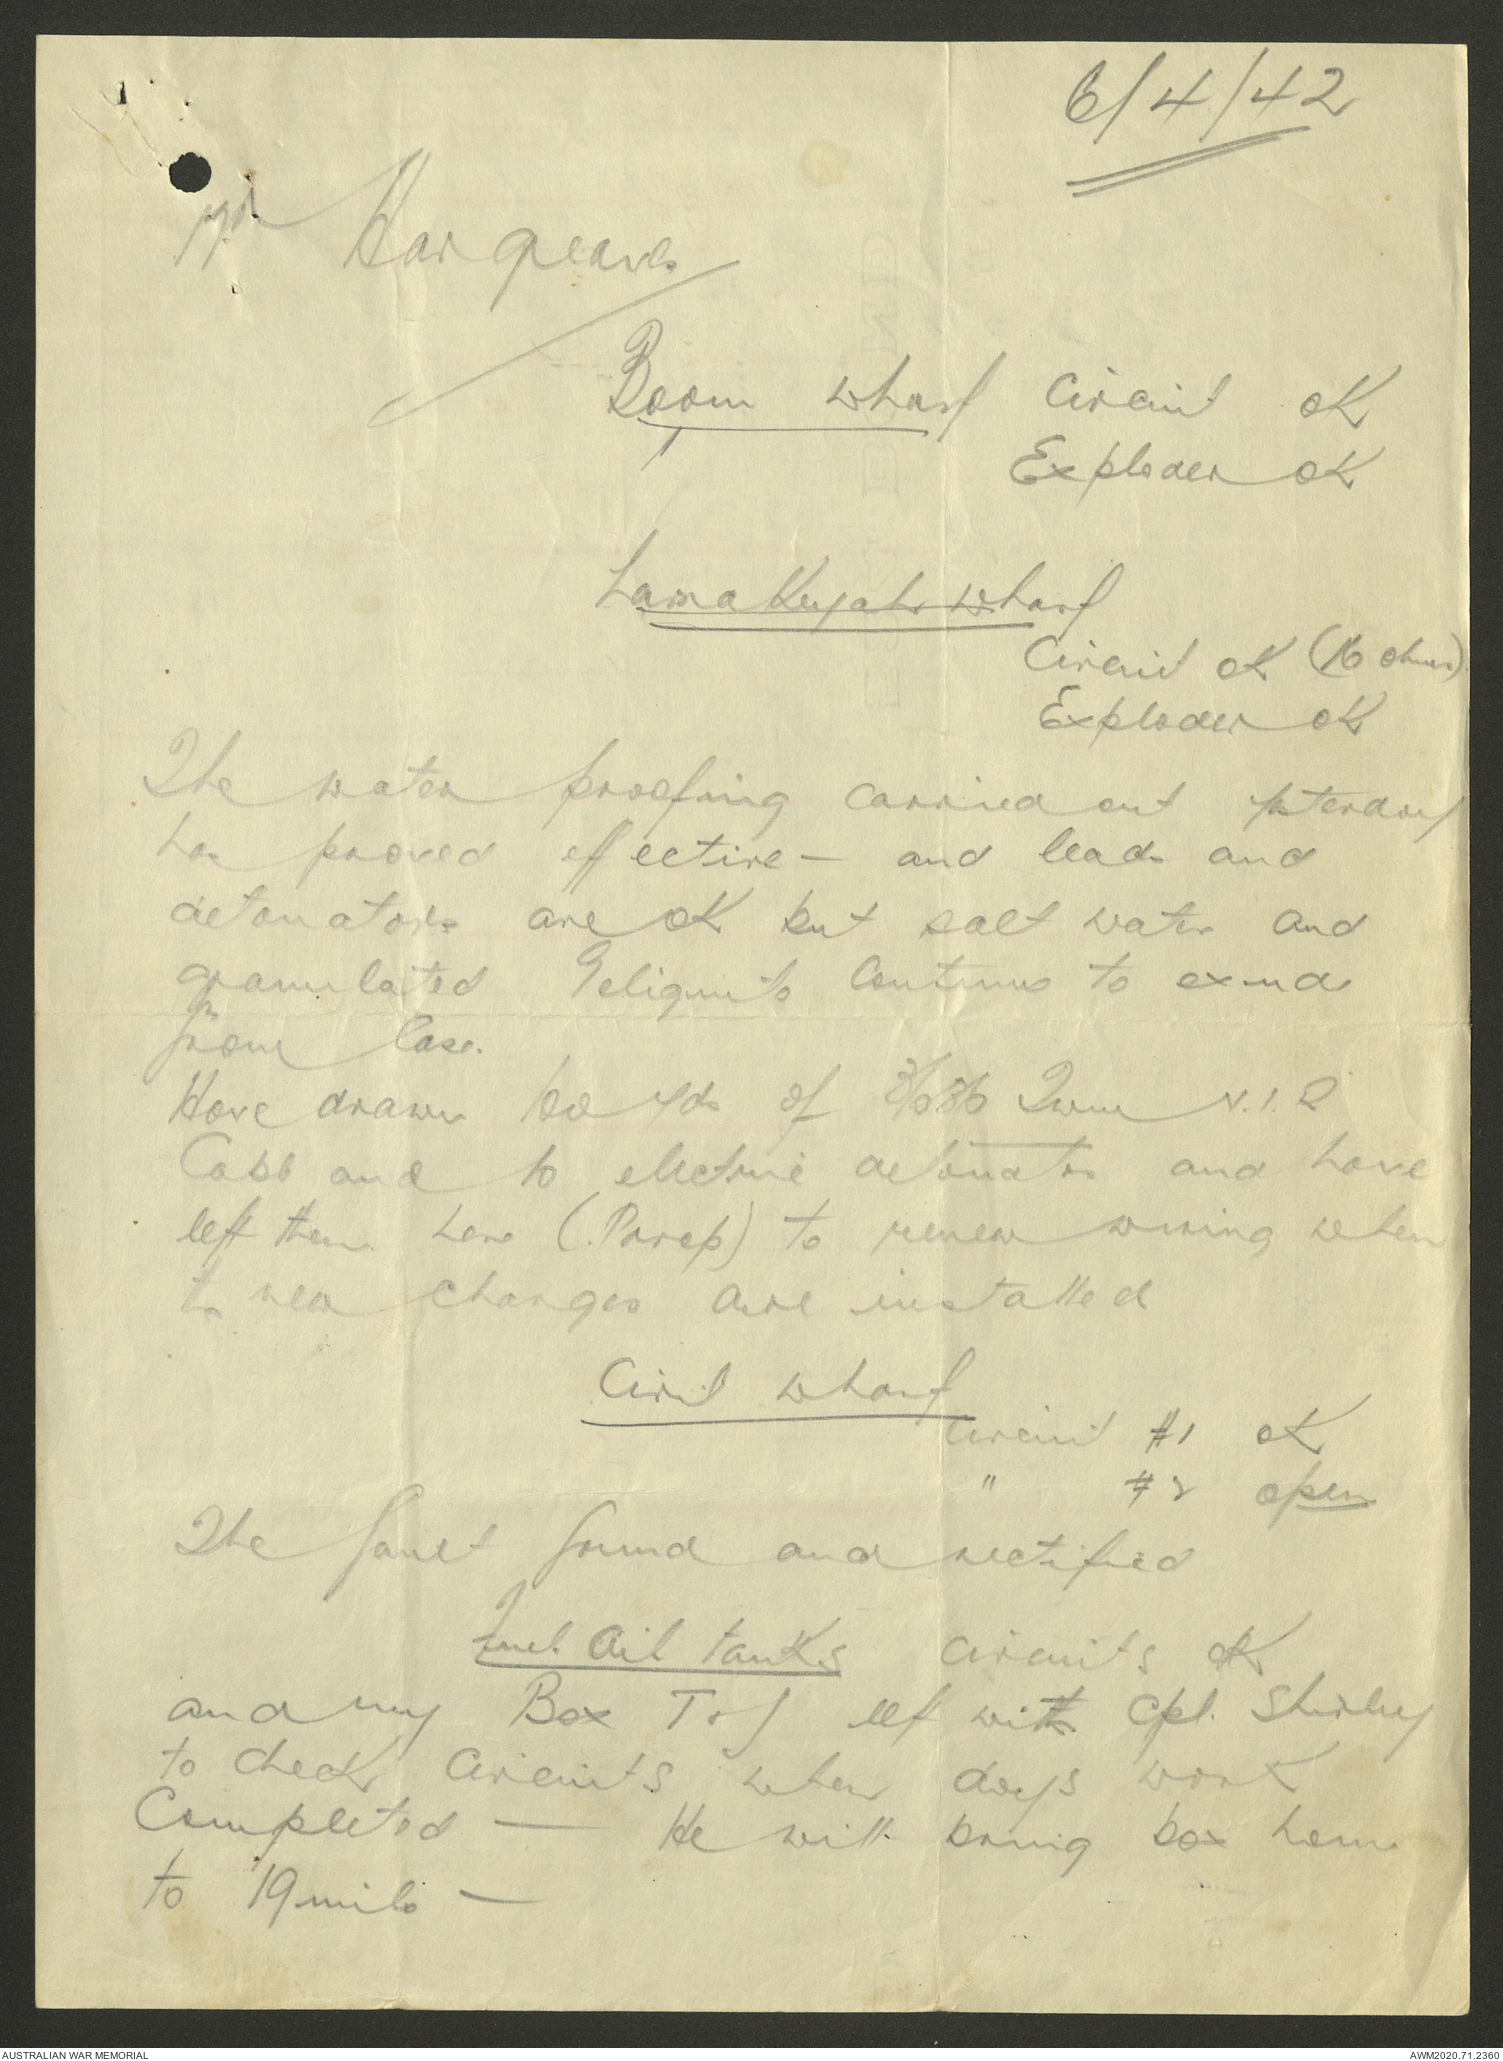 6/4/42
Mr Hargreaves
Boom wharf Circuit OK
Exploder OK
Lamakeyah wharf
Circuit OK (16 ohms)
Exploder OK
The water proofing carried out yesterday
has proved effective - and leads and
detonators are OK but salt water and
granulated Geliquite continues to exude
from Case.
Have drawn yds of Twin V.I.R
and 10 electric detonators and have
left them here (Parap) to renew wiring when
new charges are installed
Civil wharf
Circuit #1 OK
" #2 open
The fault found and rectified
Fuel Oil tanks circuits OK
and my Box Tst left with Cpl. Shirley
to check circuits when days work
Completed - He will bring box home
to 19 mile -
AUSTRALIAN WAR MEMORIAL
AWM2020.71.2360